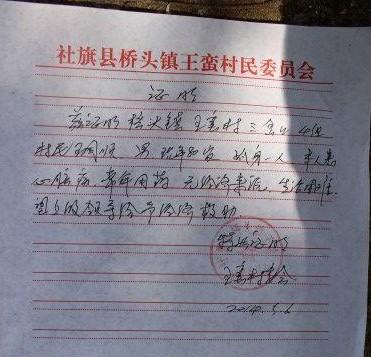 社旗县桥头镇王蛮村民委员会
证明
兹证明 桥头镇王蛮村三金公 4组
村民 男 现年 岁 孤身一人 本人患
心脏病 常年用药 无经济来源 生活困难
望上级领导给予经济救助
特此证明
王蛮村委会